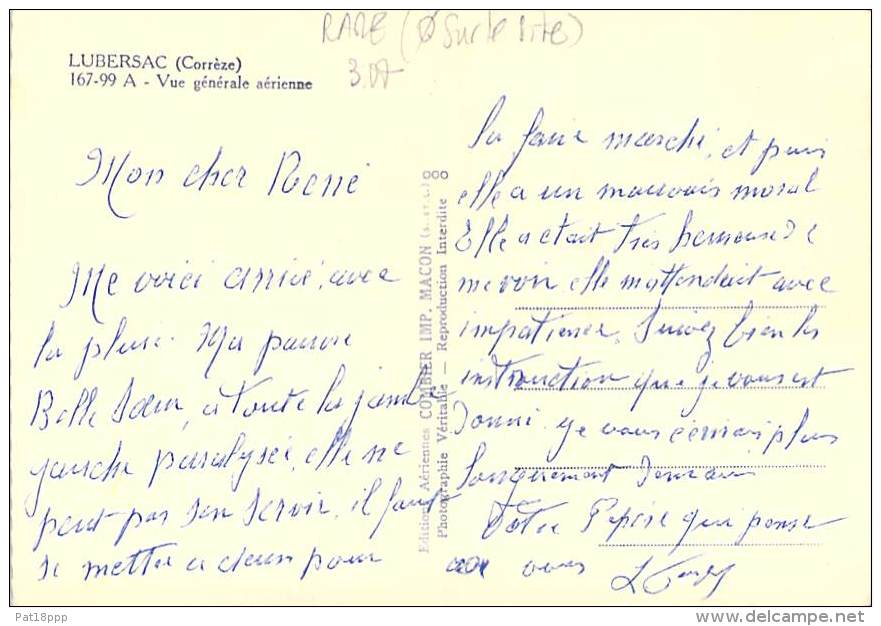 RARE (Ø sur le site)
3.07
LUBERSAC (Corrèze)
167-99 A - Vue générale aérienne
Mon cher René
Me voici arrivé, avec
la pluie. Ma pauvre
Belle Sœur, a toute la jambe
gauche paralysée, elle ne
peut pas s'en servir, il faut
se mettre a deux pour
la faire marché, et puis
elle a un mauvais moral
Elle a était très heureuse de
me voir elle m'attendait avec
impatience. Suivez bien les
instruction que je vous est
donné. Je vous écrirais plus
longuement demain
Votre Pépère qui pense
a vous
Editions Aériennes COMBIER IMP. MACON
Photographie Véritable — Reproduction Interdite
Pat18ppp
delcampe.net